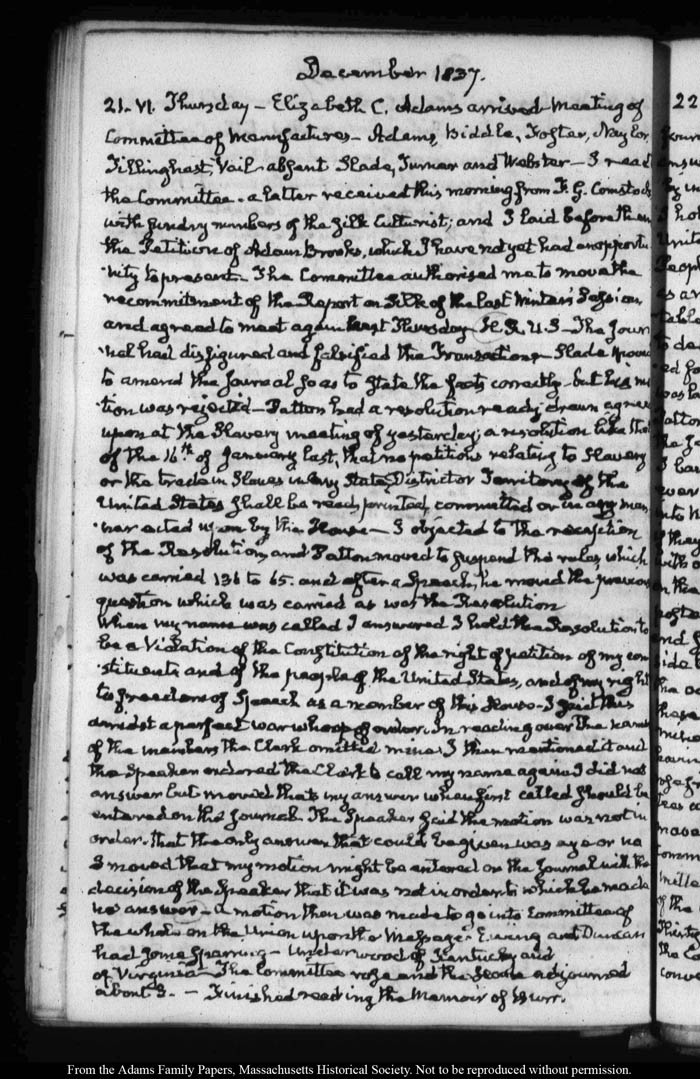 December 1837.
21. VI. Thursday — Elizabeth C. Adams arrived. Meeting of
Committee of Manufactures — Adams, Biddle, Foster, Naylor
Tillinghast, Vail absent Slade, Turner and Webster — I read
the Committee a letter received this morning from F. G. Comstock
with sundry numbers of the Silk Culturist; and I laid before them
the Petition of Adam Brooks, which I have not yet had an opportu
nity to present. The Committee authorised me to move the
recommitment of the Report on Silk of the last Winter's Session
and agreed to meet again next Thursday H. R. U. S — The Jour
nal had disfigured and falsified the Transactions — Slade moved
to amend the Journal so as to state the facts correctly — but his mo
tion was rejected — Patton had a resolution ready drawn agreed
upon at the Slavery meeting of yesterday; a resolution like that
of the 16th. of January last, that no petitions relating to Slavery
or the trade in Slaves in any State, District or Territory of the
United States shall be read, printed, committed or in any man
ner acted upon by the House — I objected to the reception
of the Resolution, and Patton moved to suspend the rules, which
was carried 136 to 65. and after a Speech, he moved the previous
question which was carried as was the Resolution
When my name was called I answered I hold the Resolution to
be a Violation of the Constitution of the right of petition of my con
stituents and of the people of the United States, and of my right
to freedom of Speech as a member of this House — I said this
amidst a perfect war whoop of order. In reading over the names
of the members the Clerk omitted mine. I then mentioned it and
the Speaker ordered the Clerk to call my name again I did not
answer but moved that my answer when first called should be
entered on the Journal. The Speaker said the motion was not in
order. that the only answer that could be given was aye or no
I moved that my motion might be entered on the Journal with the
decision of the Speaker that it was not in order to which he made
no answer — A motion then was made to go into Committee of
the whole on the Union upon the Message. Ewing and Duncan
had some sparring — Underwood of Kentucky and
of Virginia — The Committee rose and the House adjourned
about 5. — Finished reading the Memoir of Burr.
22
From the Adams Family Papers, Massachusetts Historical Society. Not to be reproduced without permission.